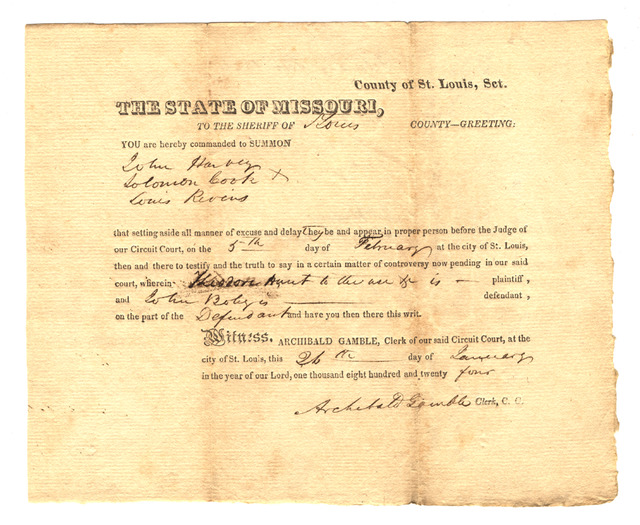 County of St. Louis, Sct.
THE STATE OF MISSOURI,
TO THE SHERIFF OF St Louis COUNTY—GREETING:
YOU are hereby commanded to SUMMON
John Harvey
Solomon Cook X
Louis
that setting aside all manner of excuse and delay they be and appear in proper person before the Judge of
our Circuit Court, on the 5th day of February at the city of St. Louis,
then and there to testify and the truth to say in a certain matter of controversy now pending in our said
court, wherein Theodore Hunt to the use &c is — plaintiff,
and John is defendant,
on the part of the Defendant and have you then there this writ.
Witness. ARCHIBALD GAMBLE, Clerk of our said Circuit Court, at the
city of St. Louis, this 26th day of January
in the year of our Lord, one thousand eight hundred and twenty four
Archibald Gamble Clerk, C. C.